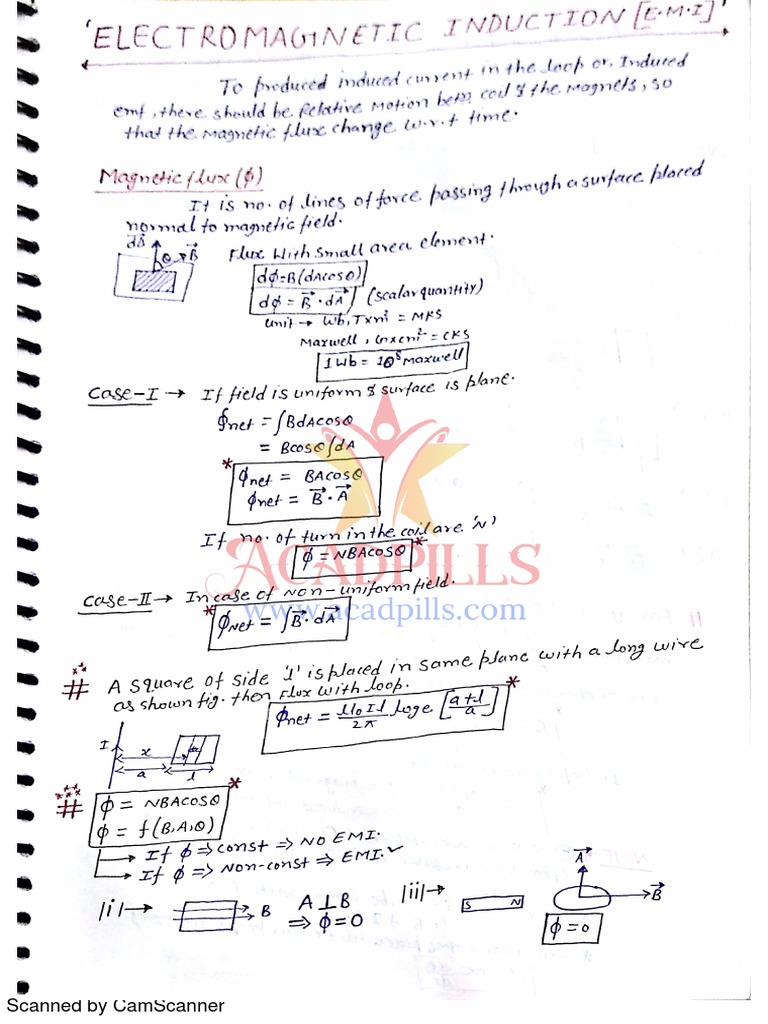 'ELECTROMAGNETIC INDUCTION [E·M·I]'
To produced induced current in the loop or, Induced
emf, there should be Relative Motion betn coil & the magnets, so
that the magnetic flux change w.r.t time.
Magnetic flux (ϕ)
It is no. of lines of force passing through a surface placed
normal to magnetic field.
dA⃗ θ B⃗
Flux With small area element.
dϕ=B(dAcosθ)
dϕ = B⃗·dA⃗ (scalar quantity)
unit → Wb, T×m² = MKS
Maxwell, G×cm² = CKS
1Wb = 10⁸ maxwell
Case-I → If field is uniform & surface is plane.
ϕnet = ∫BdAcosθ
= Bcosθ∫dA
* ϕnet = BAcosθ
ϕnet = B⃗·A⃗
If no. of turn in the coil are 'N'
ϕ = NBAcosθ *
ACADPILLS
Case-II → In case of Non-uniform field.
www.acadpills.com
* ϕNet = ∫B⃗·dA⃗
# A square of side 'l' is placed in same plane with a long wire
as shown fig. then Flux with loop.
ϕnet = μ₀Il/2π loge [a+l/a] *
I x dx
a l
# ϕ = NBAcosθ *
ϕ = f(B,A,θ)
If ϕ ⇒ const ⇒ NO EMI.
If ϕ ⇒ Non-const ⇒ EMI.✓
|i|→ B A⊥B
⇒ ϕ=0
|ii|→ S N A⃗ B⃗
ϕ=0
Scanned by CamScanner